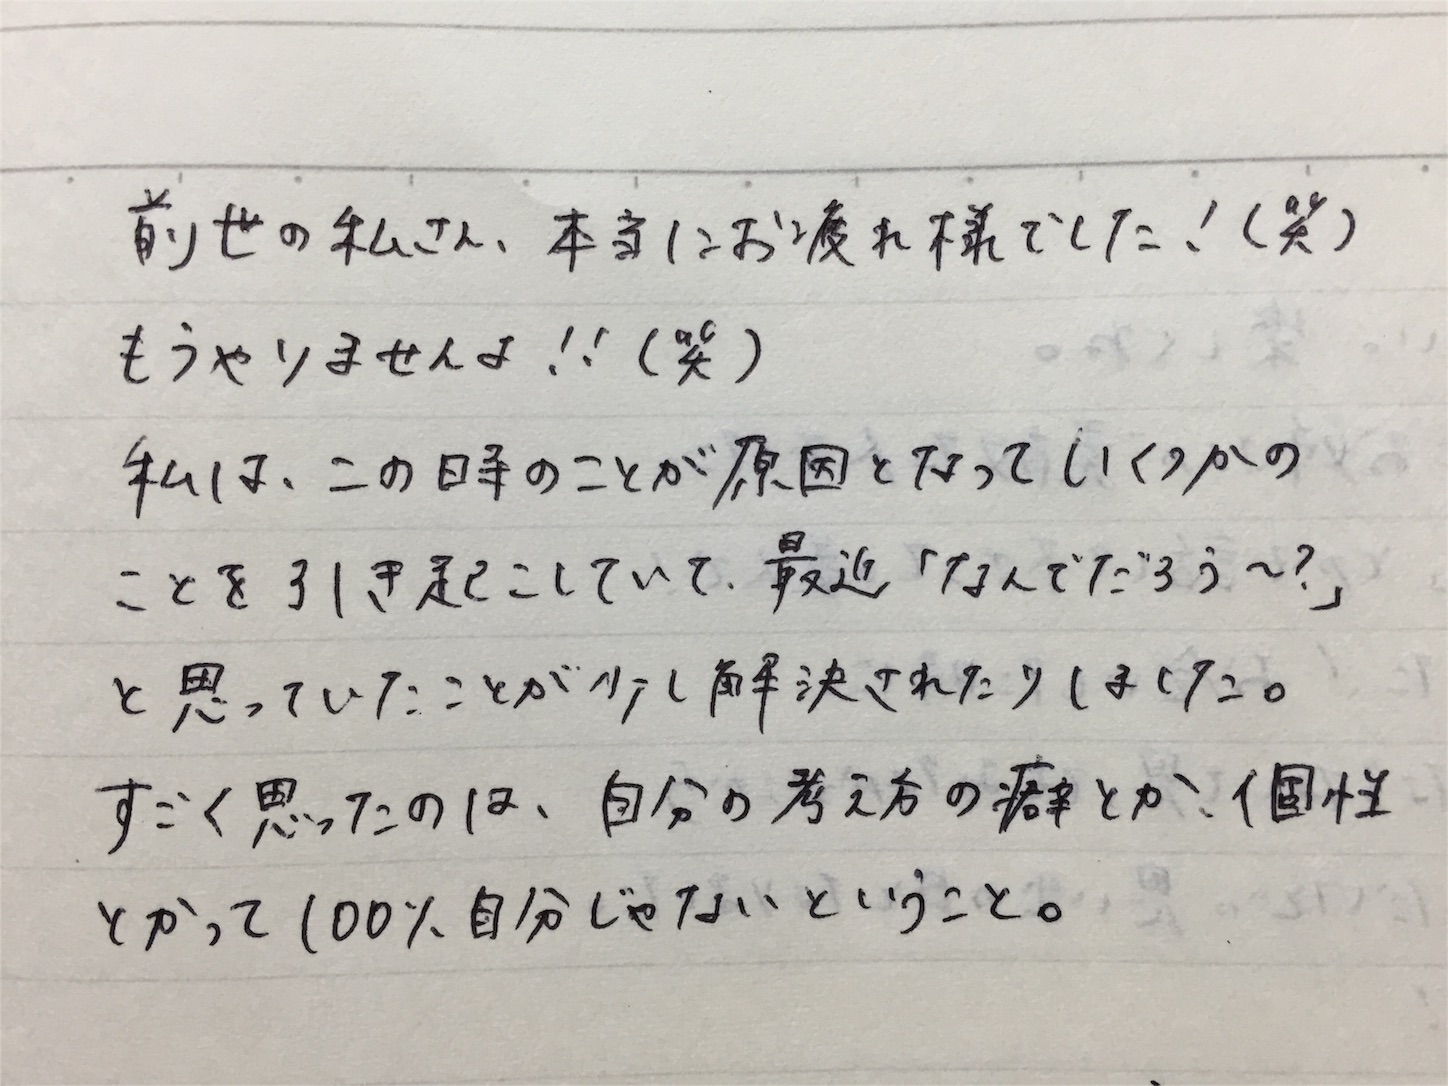 前世の私さん、本当にお疲れ様でした！(笑)
もうやりませんよ！！(笑)
私は、この時のことが原因となっていくつかの
ことを引き起こしていて、最近「なんでだろう〜？」
と思っていたことが少し解決されたりしました。
すごく思ったのは、自分の考え方の癖とか、個性
とかって100％自分じゃないということ。